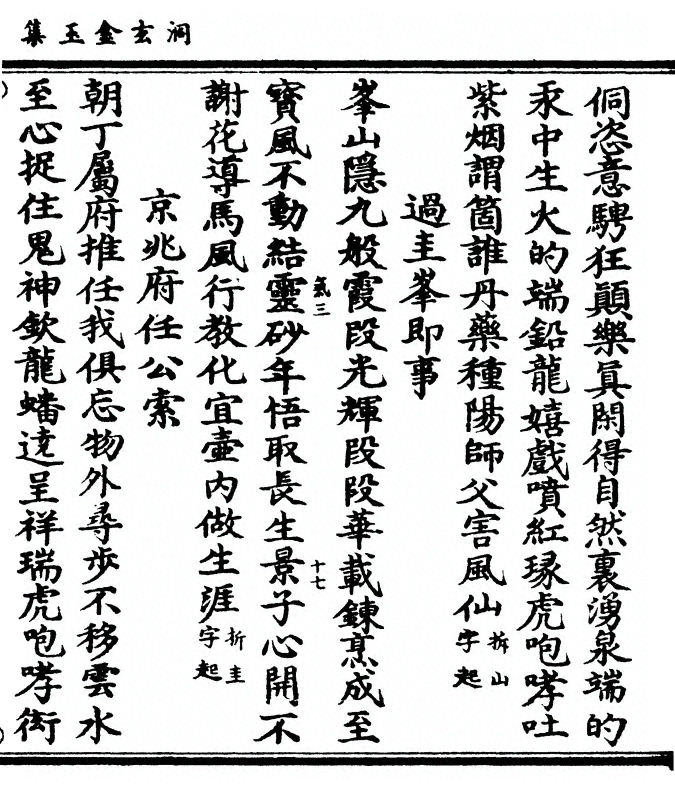 洞玄金玉集
侗恣意騁狂顛樂真閑得自然裏湧泉端的
汞中生火的端鉛龍嬉戲噴紅琭虎咆哮吐
紫烟謂箇誰丹藥種陽師父害風仙拆山字起
過圭峯即事
峯山隱九般霞段光輝段段華載鍊烹成至
寶風不動結靈砂年悟取長生景子心開不
氣三
十七
謝花導馬風行教化宜壷內做生涯折圭字起
京兆府任公索
朝丁屬府推任我俱忘物外尋步不移雲水
至心捉住鬼神欽龍蟠遶呈祥瑞虎咆哮衒